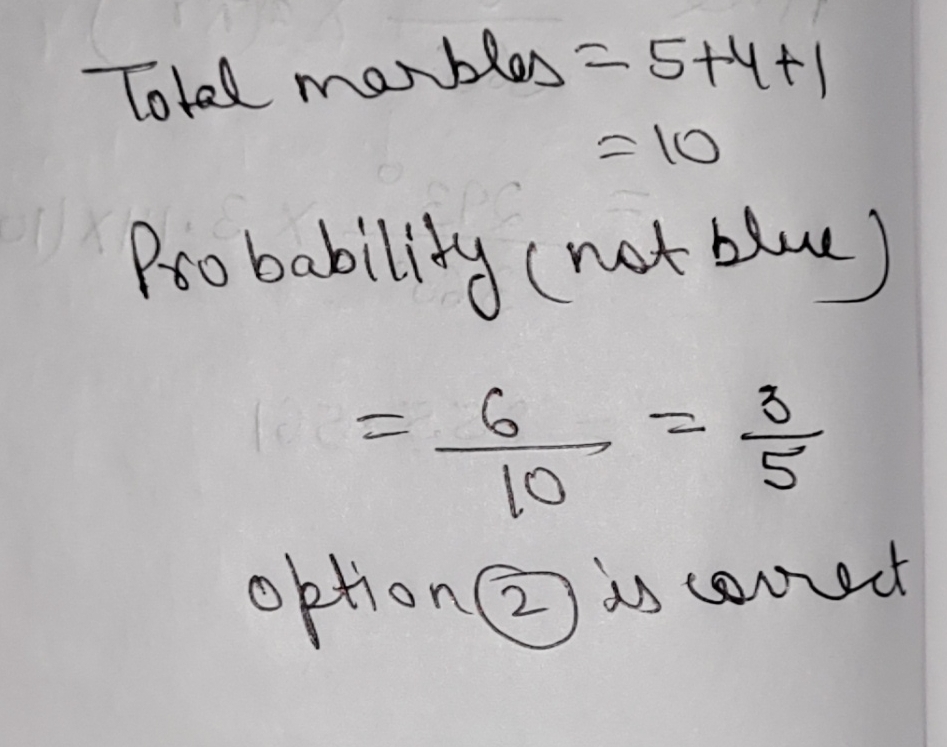 Total marbles = 5+4+1
= 10
Probability (not blue)
= 6/10 = 3/5
option ② is correct